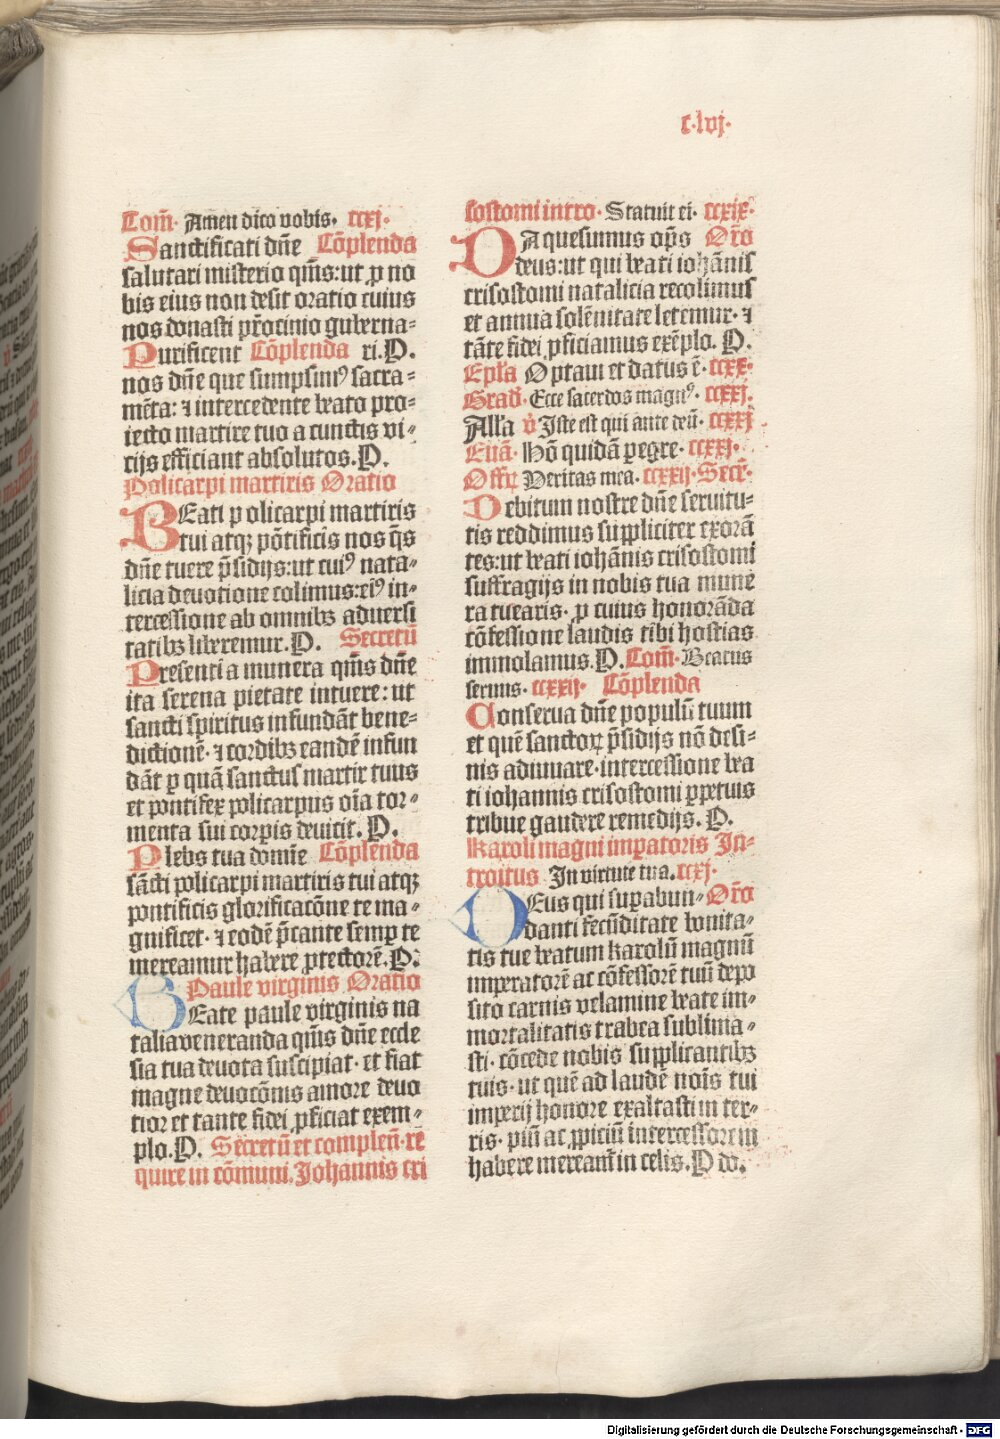 c·lvj·
Com̄· Amen dico vobis· ccxj·
Sanctificati dn̄e Cōplenda
salutari misterio qm̄s: ut ꝑ no
bis eius non desit oratio cuius
nos donasti pr̄ocinio guberna⸗
Purificent Cōplenda ri. P.
nos dn̄e que sumpsimꝰ sacra⸗
mēta: ⁊ intercedente beato pro⸗
iecto martire tuo a cunctis vi⸗
cijs efficiant absolutos. P.
Policarpi martiris Oratio
BEati policarpi martiris
tui atqꝫ pōtificis nos q̄s
dn̄e tuere p̄sidijs: ut cuiꝰ nata⸗
licia deuotione colimus: eiꝰ in⸗
tercessione ab omnibꝫ aduersi
tatibꝫ liberemur. P. Secretū
Presentia munera qm̄s dn̄e
ita serena pietate intuere: ut
sancti spiritus infundāt bene⸗
dictionē· ⁊ cordibꝫ eandē infun
dāt ꝑ quā sanctus martir tuus
et pontifex policarpus oīa tor⸗
menta sui corpis deuicit. P.
Plebs tua domīe Cōplenda
sācti policarpi martiris tui atqꝫ
pontificis glorificacōne te ma⸗
gnificet· ⁊ eodē p̄cante semꝑ te
mereamur habere ꝓtectorē. P.
Paule virginis Oratio
BEate paule virginis na
talia veneranda qm̄s dn̄e eccle
sia tua deuota suscipiat· et fiat
magne deuocōnis amore deuo
tior et tante fidei ꝓficiat exem⸗
plo. P. Secretū et complen̄· re
quire in cōmuni. Johannis cri
sostomi intro· Statuit ei· ccxix·
DA quesumus op̄s Or̄o
deus: ut qui beati iohānis
crisostomi natalicia recolimus
et annua solēnitate letemur· ⁊
tāte fidei ꝓficiamus exēplo. P.
Ep̄la Optaui et datus ē· ccxx·
Grad̄· Ecce sacerdos magnꝰ· ccxxj·
All̄a v̄ Iste est qui ante deū· ccxxj
Euā· Hō quidā ꝑegre· ccxxj·
Offꝝ Veritas mea· ccxxij· Secr̄·
Debitum nostre dn̄e seruitu⸗
tis reddimus suppliciter exorā
tes: ut beati iohānis crisostomi
suffragijs in nobis tua mune
ra tuearis· ꝑ cuius honorāda
cōfessione laudis tibi hostias
immolamus. P. Com̄· Beatus
seruus· ccxxij· Cōplenda
Conserua dn̄e populū tuum
et quē sanctoꝝ p̄sidijs nō desi⸗
nis adiuuare· intercessione bea
ti iohannis crisostomi ꝑpetuis
tribue gaudere remedijs. P.
Karoli magni imꝑatoris In⸗
troitus In virtute tua. ccxj·
DEus qui suꝑabun⸗ Or̄o
danti fecūditate bonita⸗
tis tue beatum karolū magnū
imperatorē ac cōfessorē tuū depo
sito carnis velamine beate im⸗
mortalitatis trabea sublima⸗
sti· cōcede nobis supplicantibꝫ
tuis· ut quē ad laudē nois̄ tui
imperij honore exaltasti in ter⸗
ris· piū ac ꝓpiciū intercessorem
habere mereant̄ in celis. P do.
Digitalisierung gefördert durch die Deutsche Forschungsgemeinschaft - DFG